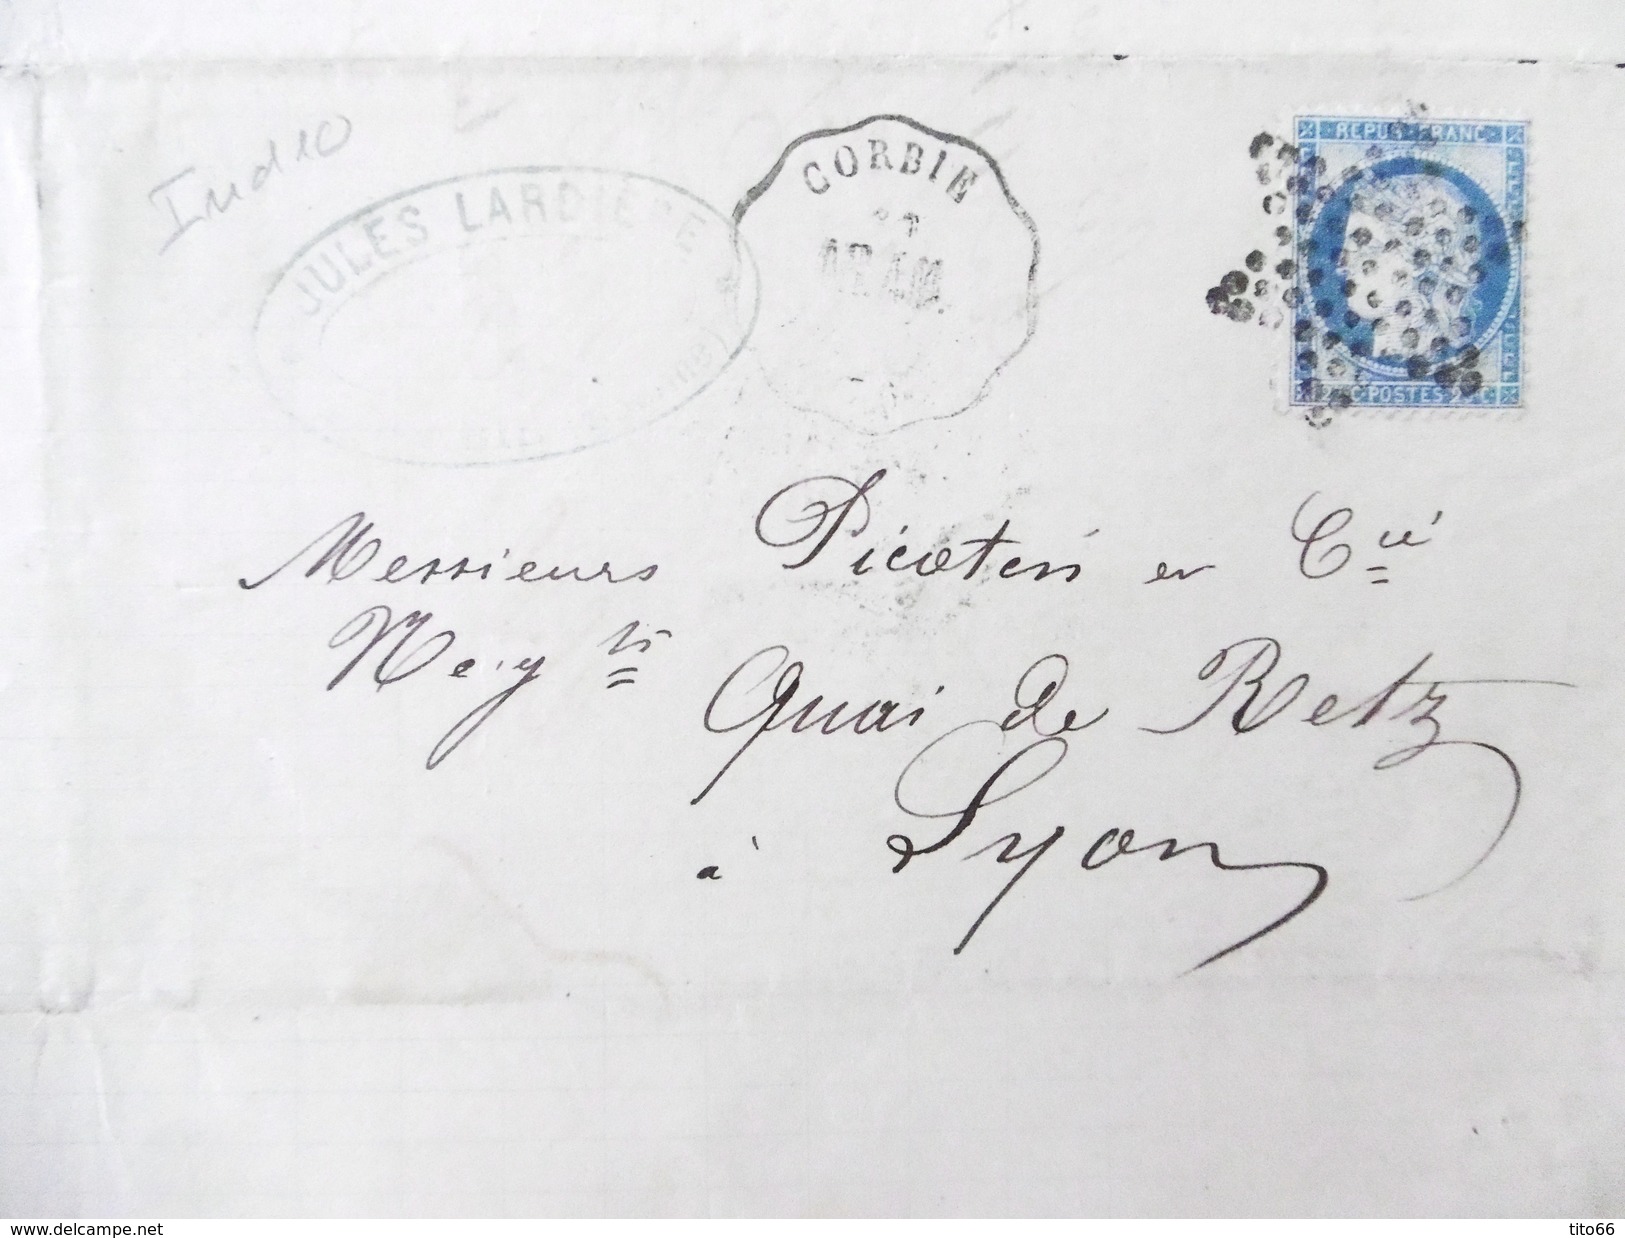 Ind 10
JULES LARDIÈRE
CORBIE
REPUB. FRANC.
25 C. POSTES 25 C.
Messieurs Picoteris et Cie
Neg ts
Quai de Retz
à Lyon
www.delcampe.net
tito66